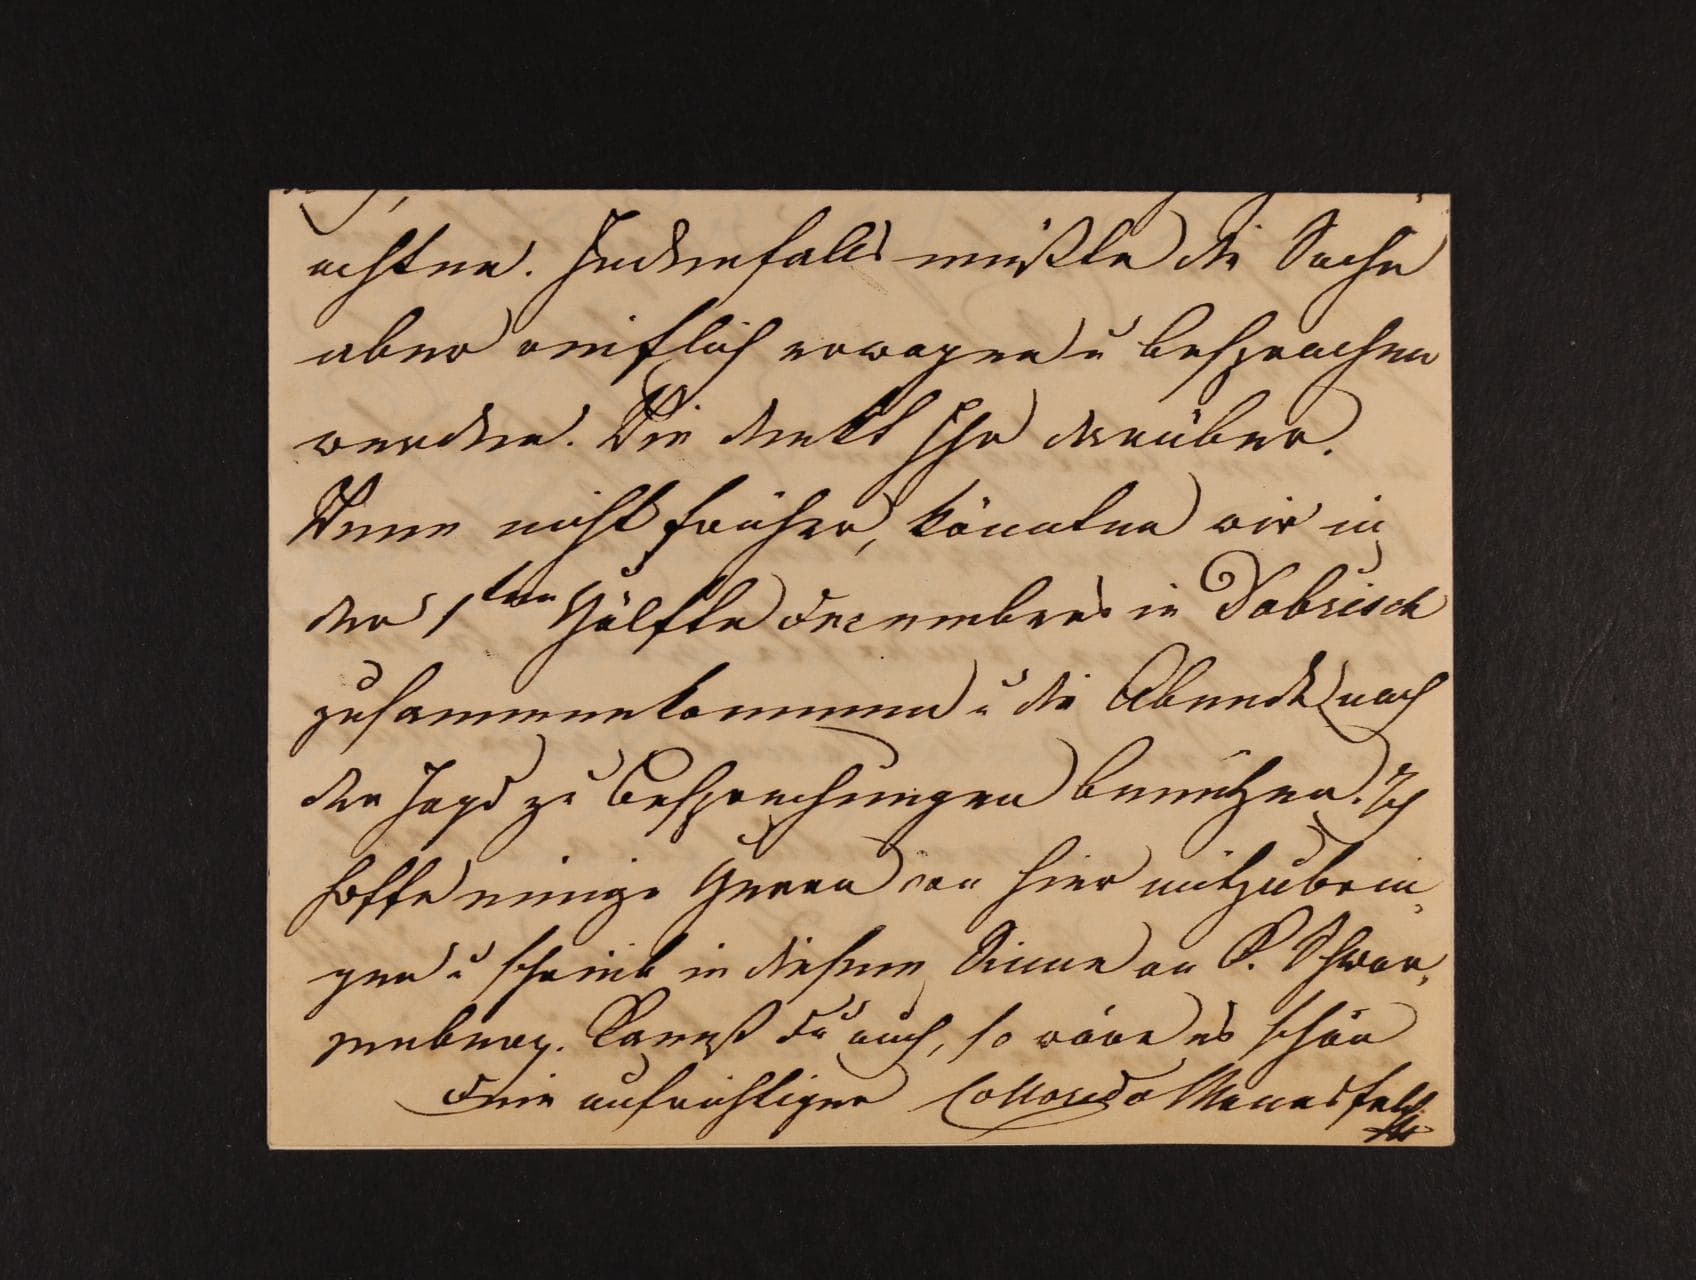 achten. Jedenfalls müßte die Sache
aber reiflich erwogen u besprochen
werden. Wie denkt Ihr darüber.
Wenn nicht früher, könnten wir in
der 1ten Hälfte Decembers in Dobrisch
zusammenkommen u die Abende nach
der Jagd zu Besprechungen benützen. Ich
hoffe einige Herren von hier mitzubrin-
gen u schreib in diesem Sinne an C. Schwar-
zenberg. Kannst Du auch, so wäre es schön
Dein aufrichtiger Colloredo Mannsfeld